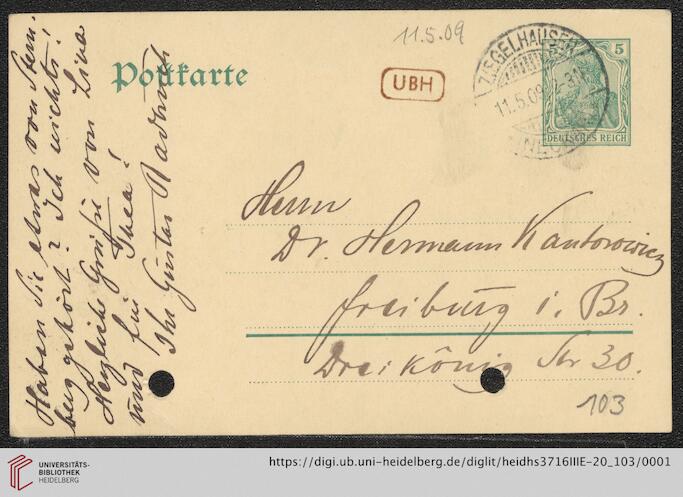 11.5.09
Postkarte
UBH
ZIEGELHAUSEN
11.5.09
5
DEUTSCHES REICH
Herrn
Dr. Hermann Kantorowicz
Freiburg i. Br.
Dreikönig Str 30.
103
Haben Sie etwas von Stern-
berg gehört? Ich nichts!
Herzliche Grüße von Lina
und für Thea!
Ihr Gustav Radbruch
UNIVERSITÄTS-
BIBLIOTHEK
HEIDELBERG
https://digi.ub.uni-heidelberg.de/diglit/heidhs3716IIIE-20_103/0001